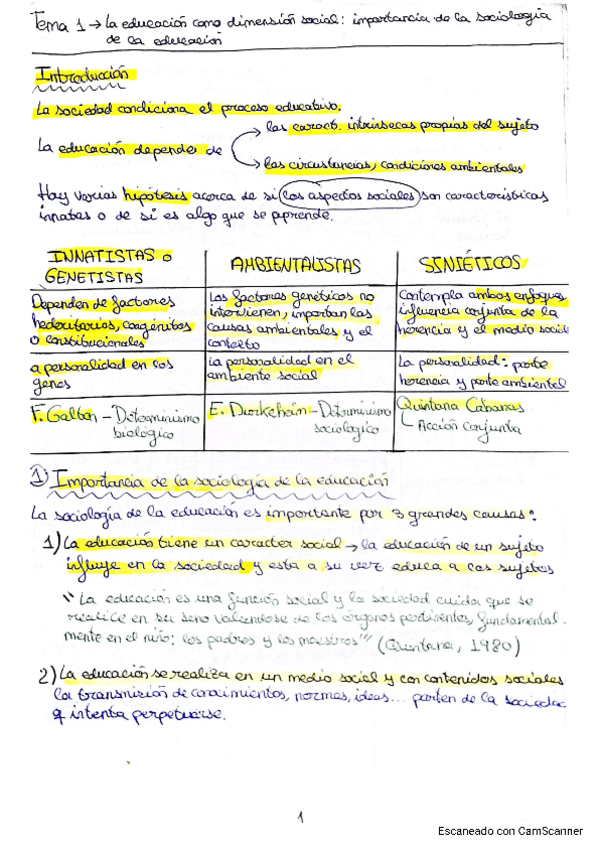 Tema 1 → la educación como dimensión social: importancia de la sociología
de la educación
Introducción
La sociedad condiciona el proceso educativo.
→ las caract. intrínsecas propias del sujeto
La educación depende de
→ las circustancias, condiciones ambientales
Hay varias hipótesis acerca de si los aspectos sociales son características
innatas o de si es algo que se aprende.
INNATISTAS o
GENETISTAS
AMBIENTALISTAS
SINIÉTICOS
Dependen de factores
hederitarios, congénitos
o constitucionales
Los factores genéticos no
intervienen, importan las
causas ambientales y el
contexto
Contempla ambos enfoques
influencia conjunta de la
herencia y el medio social
a personalidad en los
genes
La personalidad en el
ambiente social
La personalidad: parte
herencia y parte ambiental
F. Galton – Determinismo
biológico
E. Durkeheim – Determinismo
sociológico
Quintana Cabanas
Acción conjunta
1) Importancia de la sociología de la educación
La sociología de la educación es importante por 3 grandes causas:
1) La educación tiene un caracter social → la educación de un sujeto
influye en la sociedad y esta a su vez educa a los sujetos
"La educación es una función social y la sociedad cuida que se
realice en su seno valiendose de los órganos pertinentes, fundamental-
mente en el niño: los padres y los maestros" (Quintana, 1980)
2) La educación se realiza en un medio social y con contenidos sociales
la transmisión de conocimientos, normas, ideas... parten de la sociedad
q intenta perpetuarse.
1
Escaneado con CamScanner